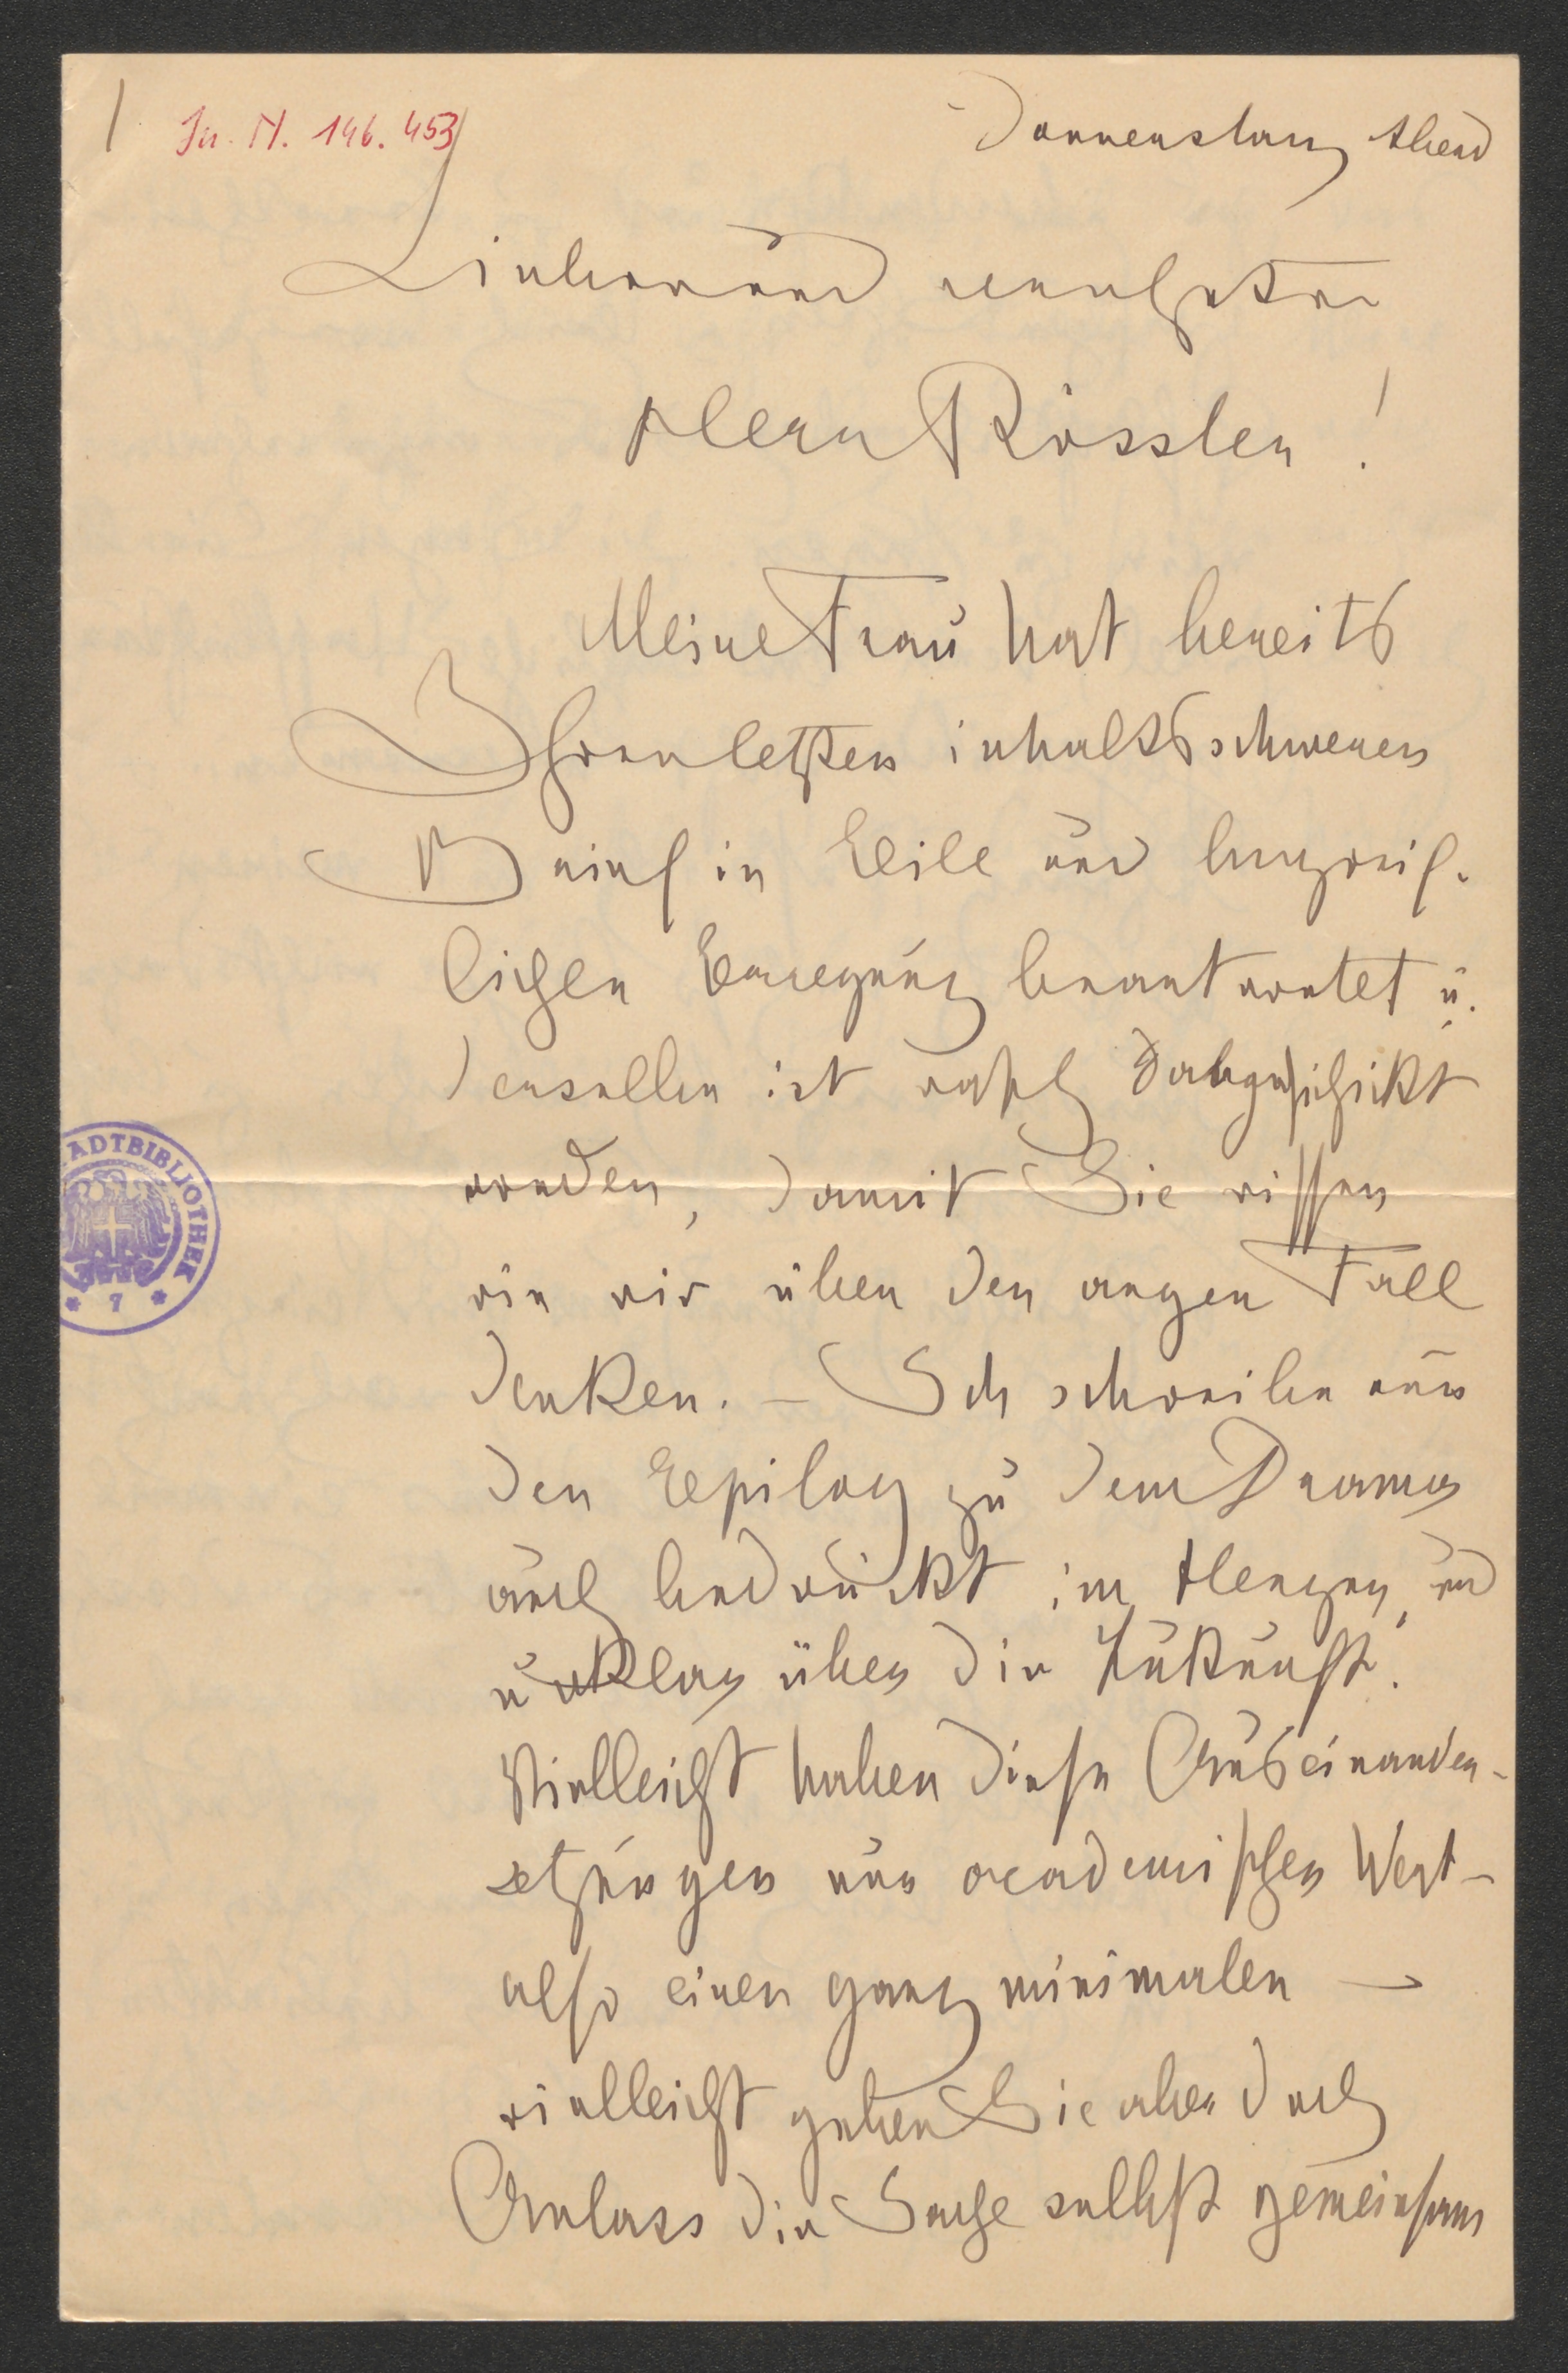 J. N. 146.453
Donnerstag Abend
Lieber und verehrter
Herr Rössler!
Meine Frau hat bereits
Ihren letzten inhaltsschweren
Brief in Eile und begreif-
lichen Erregung beantwortet u.
derselbe ist rasch abgeschickt
worden, damit Sie wissen
wie wir über den argen Fall
denken. – Ich schreibe nun
den Epilog zu dem Drama
auch bedrückt im Herzen, und
unklar über die Zukunft.
Vielleicht haben diese Auseinander-
setzungen nur academischen Wert –
also einen ganz minimalen –
vielleicht geben Sie aber doch
Anlass die Sache selbst gemeinsam
STADTBIBLIOTHEK
* 7 *